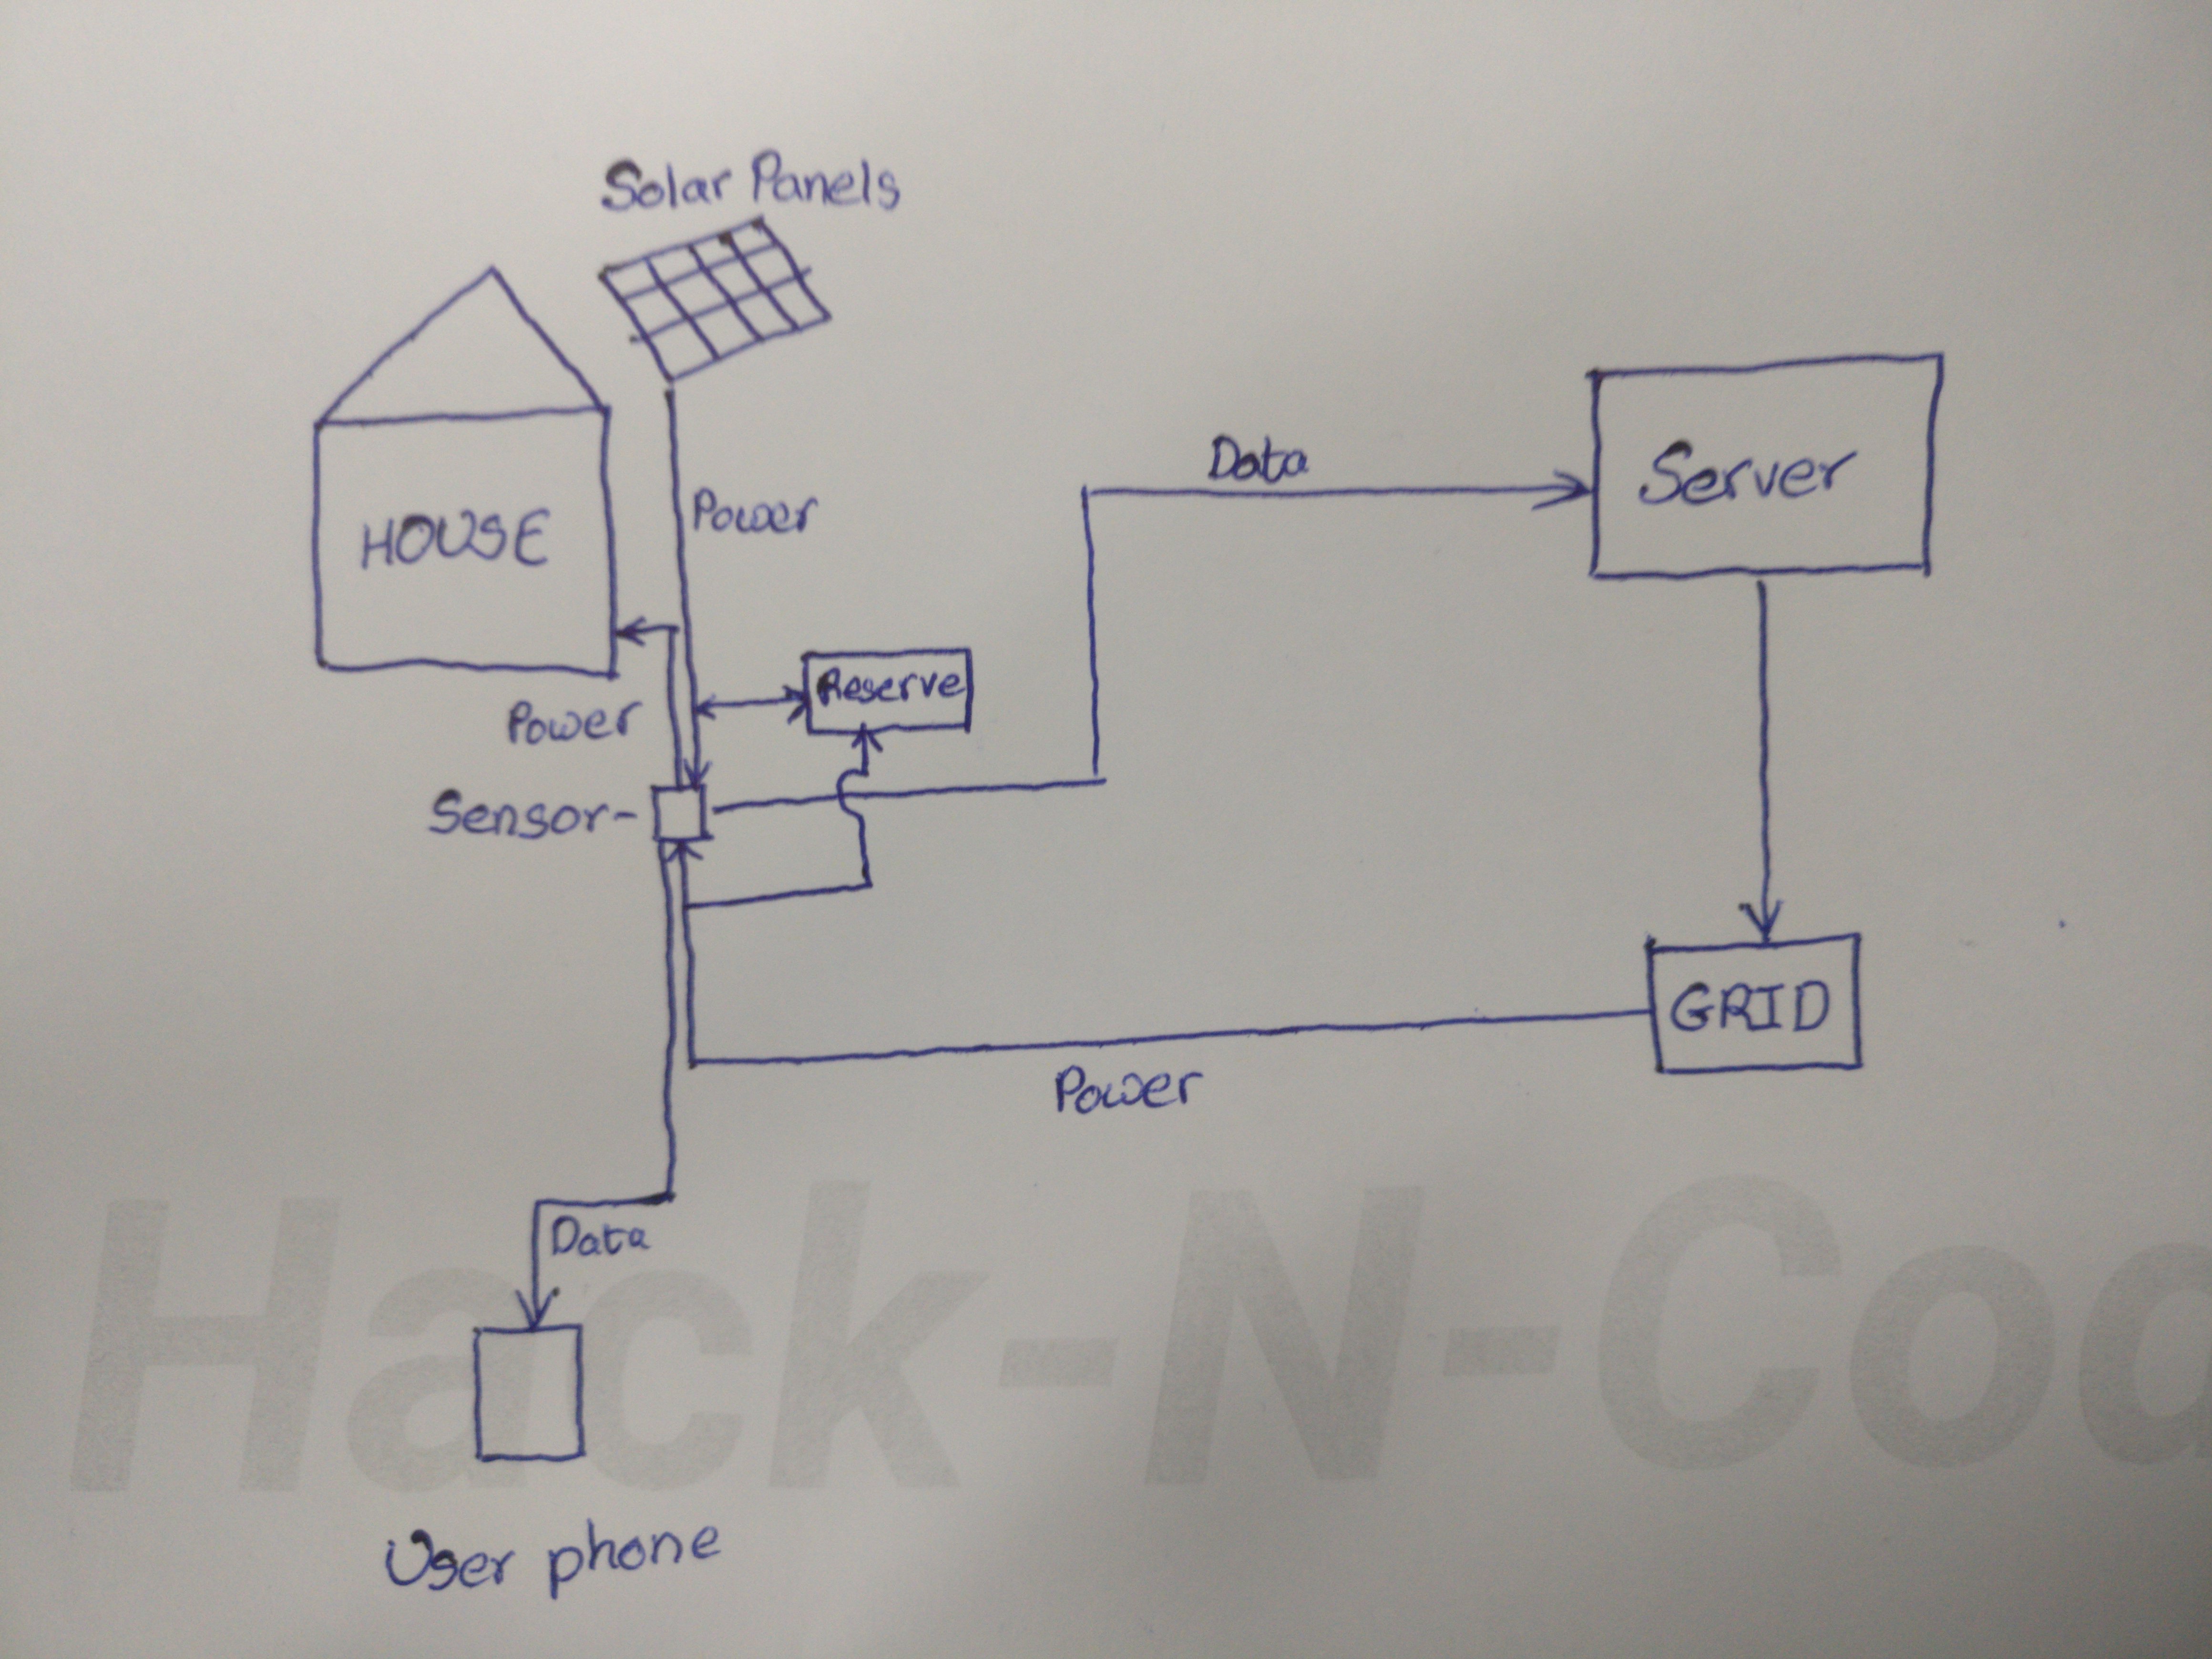 Solar Panels
HOUSE
Power
Data
Server
Reserve
Power
Sensor-
GRID
Power
Data
Hack-N-Cod
User phone